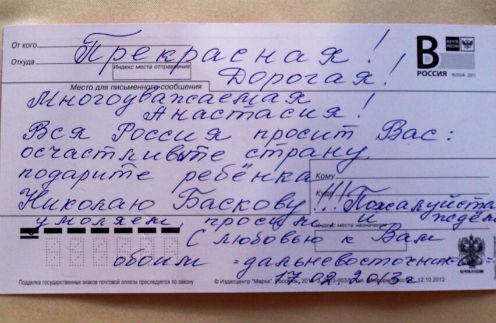 От кого
Прекрасная!
Откуда
Индекс места отправления
Дорогая!
В
РОССИЯ RUSSIA 2011
Место для письменного сообщения
Многоуважаемая
Анастасия!
Вся Россия просит Вас:
осчастливьте страну,
подарите ребёнка
Кому
Николаю Баскову!!! Пожалуйста
Куда
умоляем просим и ждём
Индекс места назначения
С любовью к Вам
обоим =дальневосточники=
17.02.2013г
Подделка государственных знаков почтовой оплаты преследуется по закону
© Издатцентр "Марка" 12.10.2012